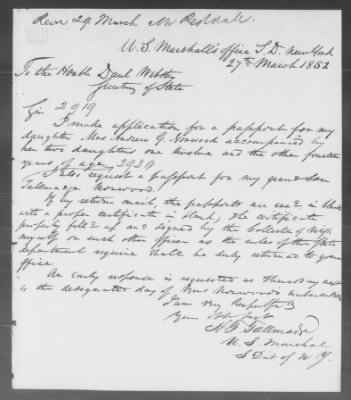 Recd 29. March Mr
U.S. Marshall's office S.D. New York
27th March 1852
To the Honble Danl Webster
Secretary of State
Sir 2919
I make application for a passport for my
daughter Mrs Andrew G. Norwood accompanied by
her two daughters one twelve and the other fourteen
years of age 2920
I also request a passport for my grand son
Tallmadge Norwood.
If by return mail, the passports are in blank
with a proper certificate in blank, the certificate
properly up and signed by the Collector of
myself or such other officer as the rules of the State
department require shall be duly returned to your
office.
An early response is requested as thursday next
is the designated day of Mrs Norwoods
I am Very Respectfy
Your Obt
A G Tallmadge
U. S. Marshal
S Dist of N Y.